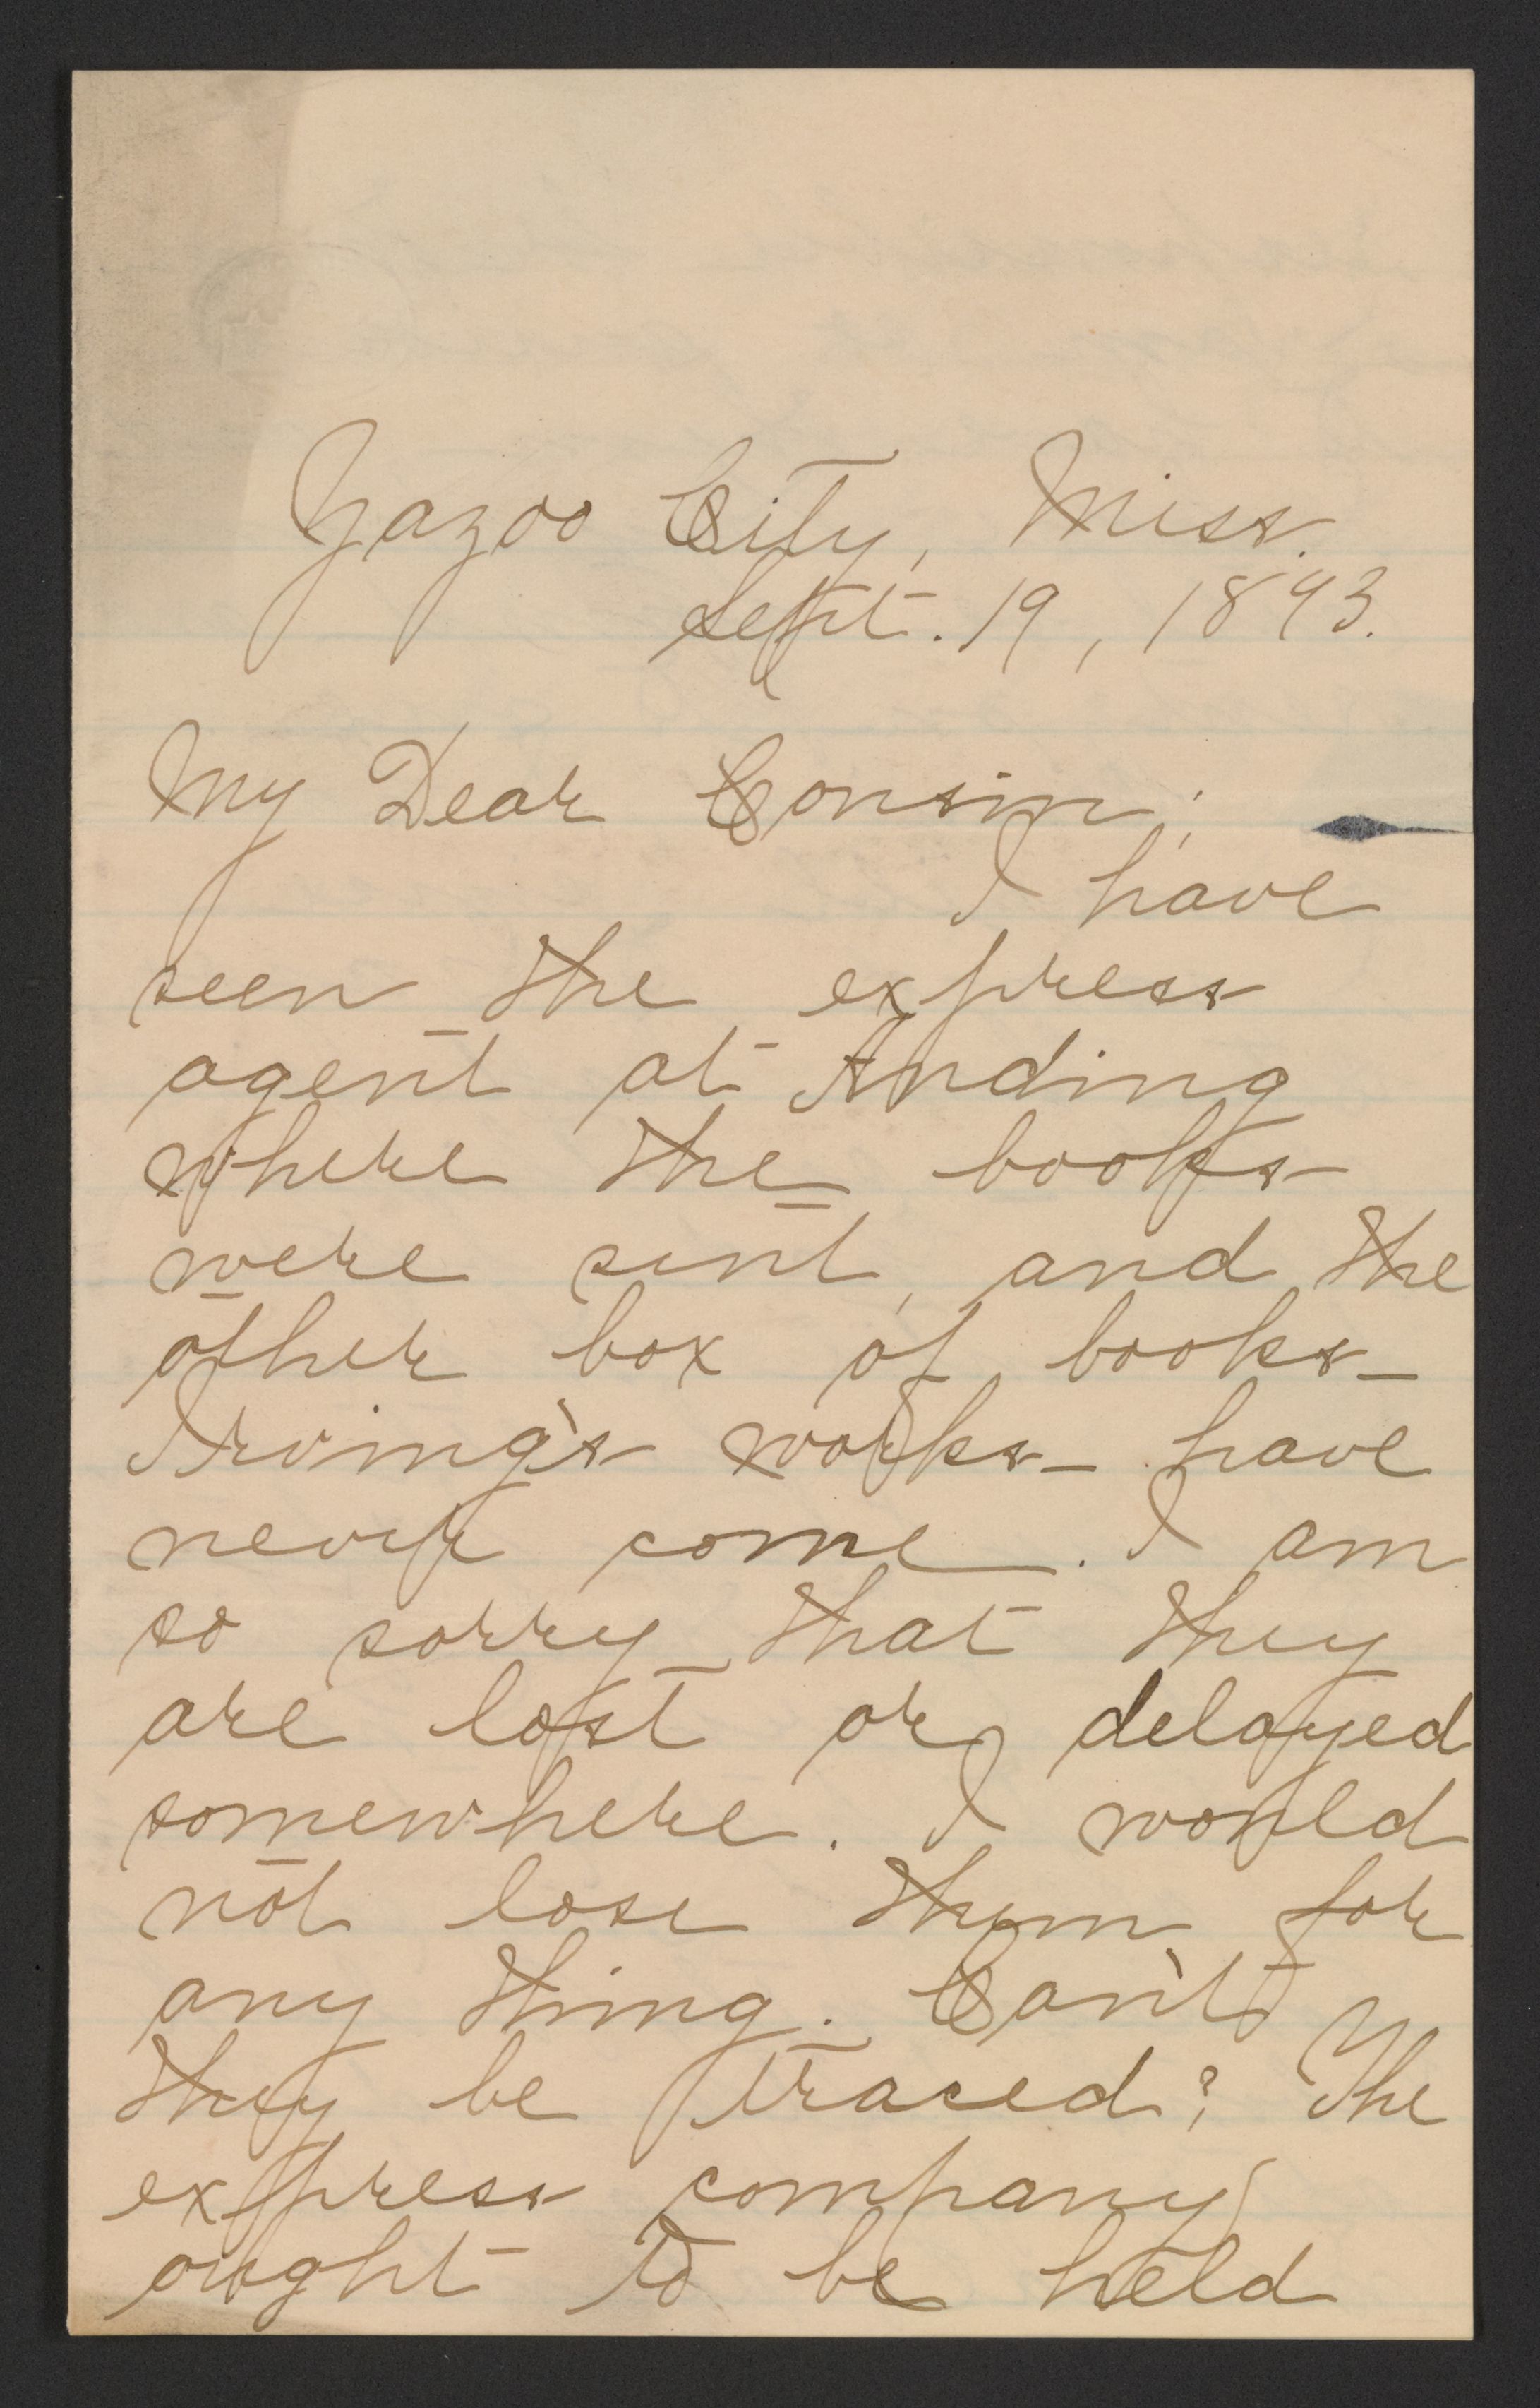 Yazoo City, Miss.
Sept. 19, 1893.
My Dear Cousin;
I have
seen the express
agent at Anding
where the books
were sent, and the
other box of books_
Irving's works_ have
never come. I am
so sorry that they
are lost or delayed
somewhere. I would
not lose them for
any thing. Can't
they be traced? The
express company
ought to be held